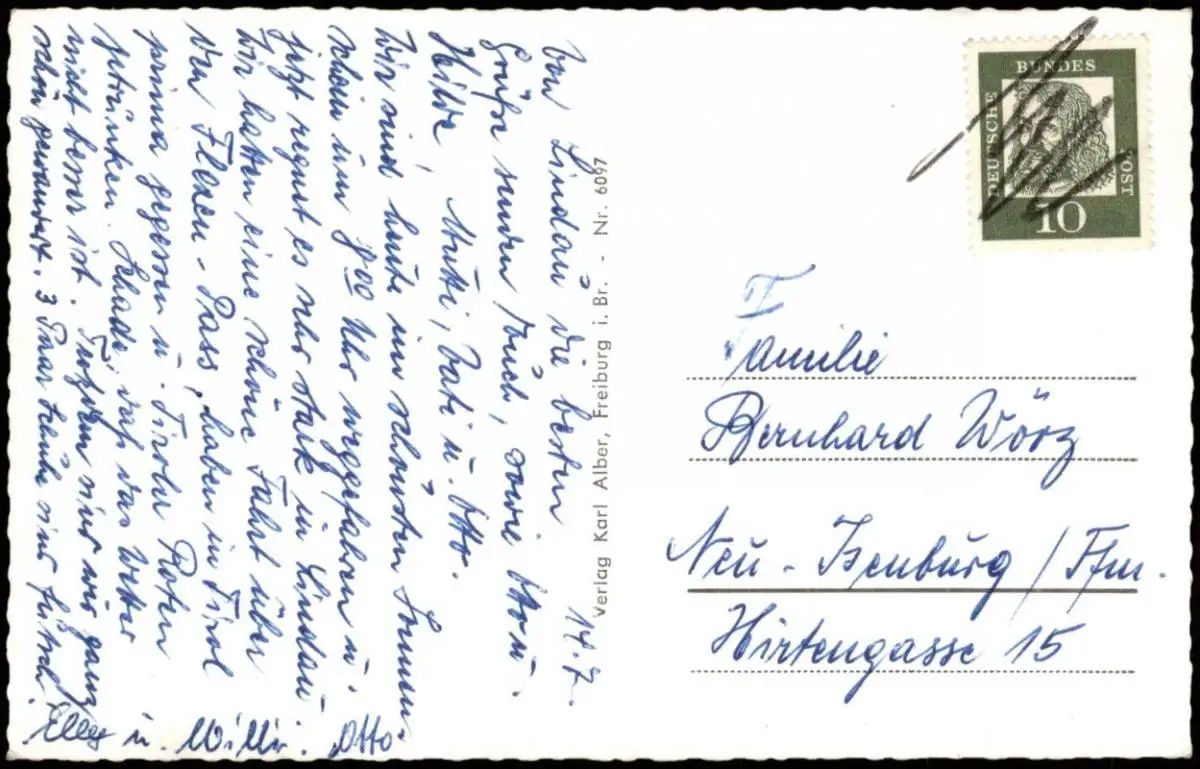 14.7.
Von Lindau die besten
Grüße senden Euch, sowie
Hilde, Mutti, Vati u. Otto.
Wir sind heute im schönsten Sonnen-
schein um 8⁰⁰ Uhr weggefahren u.
jetzt regnet es sehr stark in Lindau.
Wir hatten eine schöne Fahrt über
den Flexen-Pass, haben in Tirol
prima gegessen u. Tiroler Roten
getrunken. Schade, daß das Wetter
nicht besser ist. Trotzdem sind wir ganz
schön gewandert. 3 Paar Leute sind
Elly u. Willi. Otto
Verlag Karl Alber, Freiburg i. Br. - Nr. 6097
DEUTSCHE BUNDES POST
10
Familie
Bernhard Wörz
Neu-Isenburg/Ffm.
Hirtengasse 15